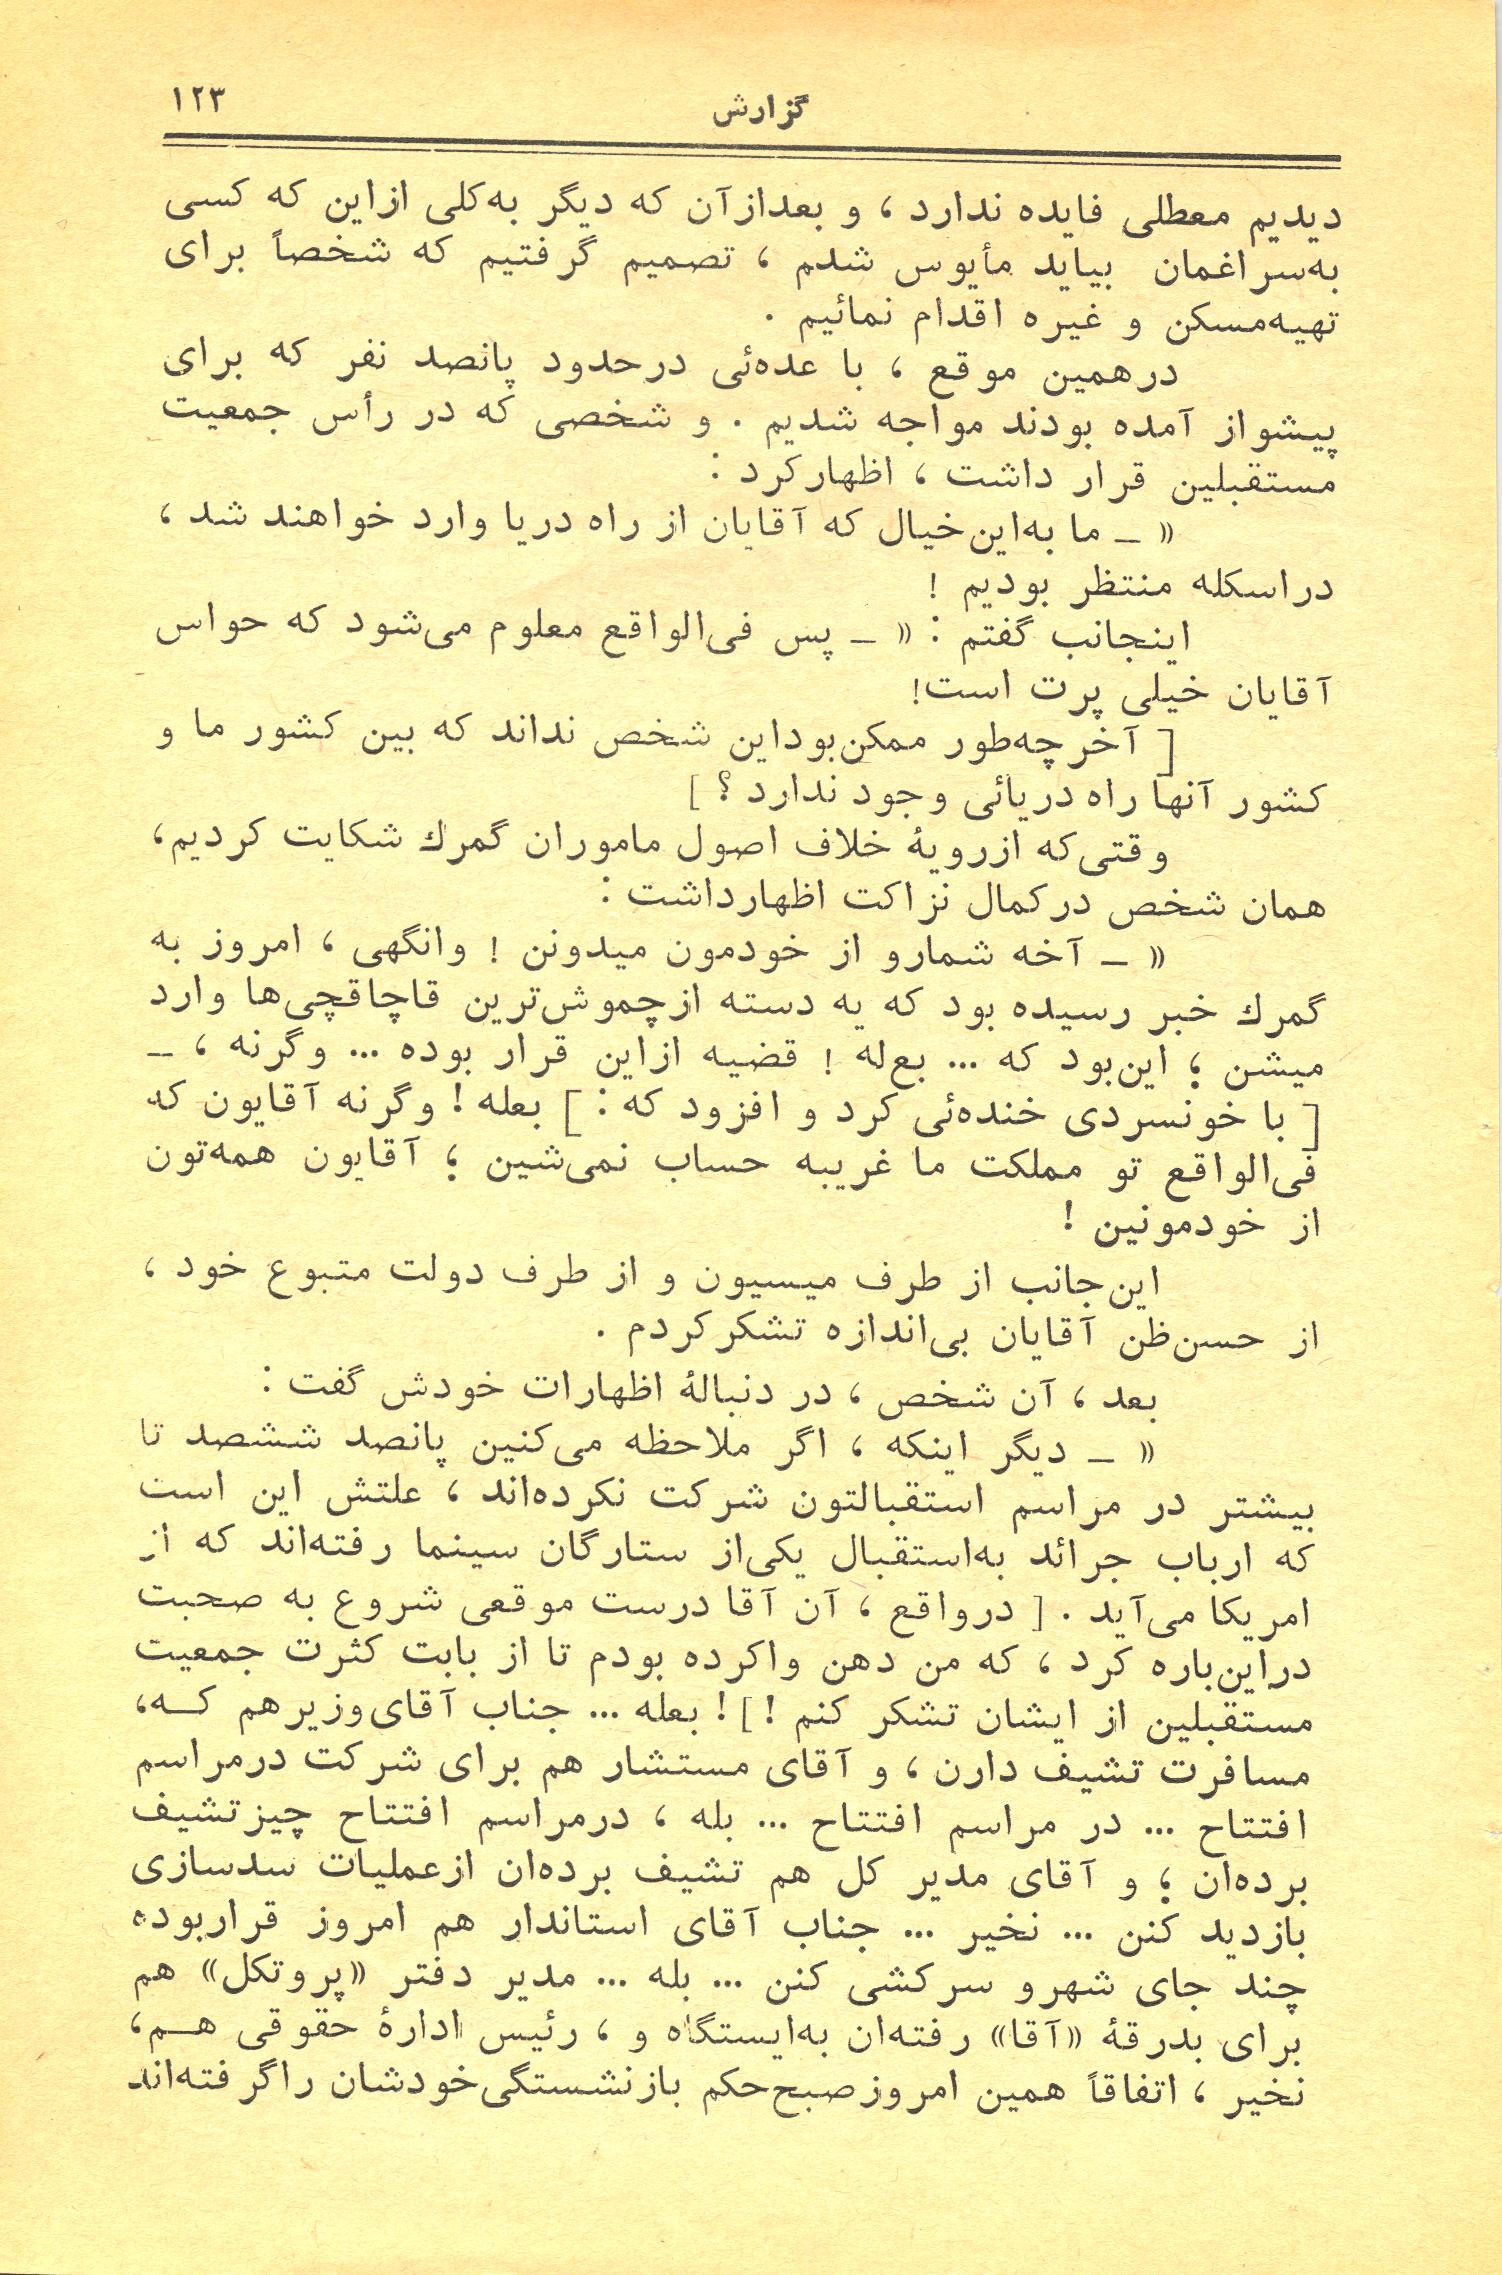 گزارش ۱۲۳
دیدیم معطلی فایده ندارد ، و بعدازآن که دیگر به‌کلی ازاین که کسی
به‌سراغمان بیاید مأیوس شدم ، تصمیم گرفتیم که شخصاً برای
تهیه‌مسکن و غیره اقدام نمائیم .
درهمین موقع ، با عده‌ئی درحدود پانصد نفر که برای
پیشواز آمده بودند مواجه شدیم . و شخصی که در رأس جمعیت
مستقبلین قرار داشت ، اظهارکرد :
« ـ ما به‌این‌خیال که آقایان از راه دریا وارد خواهند شد ،
دراسکله منتظر بودیم !
اینجانب گفتم : « ـ پس فی‌الواقع معلوم می‌شود که حواس
آقایان خیلی پرت است!
[ آخرچه‌طور ممکن‌بوداین شخص نداند که بین کشور ما و
کشور آنها راه دریائی وجود ندارد ؟ ]
وقتی‌که ازرویهٔ خلاف اصول ماموران گمرك شکایت کردیم،
همان شخص درکمال نزاکت اظهارداشت :
« ـ آخه شمارو از خودمون میدونن ! وانگهی ، امروز به
گمرك خبر رسیده بود که یه دسته ازچموش‌ترین قاچاقچی‌ها وارد
میشن ؛ این‌بود که ... بع‌له ! قضیه ازاین قرار بوده ... وگرنه ، ـ
[ با خونسردی خنده‌ئی کرد و افزود که : ] بعله ! وگرنه آقایون که
فی‌الواقع تو مملکت ما غریبه حساب نمی‌شین ؛ آقایون همه‌تون
از خودمونین !
این‌جانب از طرف میسیون و از طرف دولت متبوع خود ،
از حسن‌ظن آقایان بی‌اندازه تشکرکردم .
بعد ، آن شخص ، در دنبالهٔ اظهارات خودش گفت :
« ـ دیگر اینکه ، اگر ملاحظه می‌کنین پانصد ششصد تا
بیشتر در مراسم استقبالتون شرکت نکرده‌اند ، علتش این است
که ارباب جرائد به‌استقبال یکی‌از ستارگان سینما رفته‌اند که از
امریکا می‌آید . [ درواقع ، آن آقا درست موقعی شروع به صحبت
دراین‌باره کرد ، که من دهن واکرده بودم تا از بابت کثرت جمعیت
مستقبلین از ایشان تشکر کنم ! ] ! بعله ... جناب آقای‌وزیرهم کـه،
مسافرت تشیف دارن ، و آقای مستشار هم برای شرکت درمراسم
افتتاح ... در مراسم افتتاح ... بله ، درمراسم افتتاح چیزتشیف
برده‌ان ؛ و آقای مدیر کل هم تشیف برده‌ان ازعملیات سدسازی
بازدید کنن ... نخیر ... جناب آقای استاندار هم امروز قراربوده
چند جای شهرو سرکشی کنن ... بله ... مدیر دفتر «پروتکل» هم
برای بدرقهٔ «آقا» رفته‌ان به‌ایستگاه و ، رئیس ادارهٔ حقوقی هـم،
نخیر ، اتفاقاً همین امروزصبح‌حکم بازنشستگی‌خودشان راگرفته‌اند